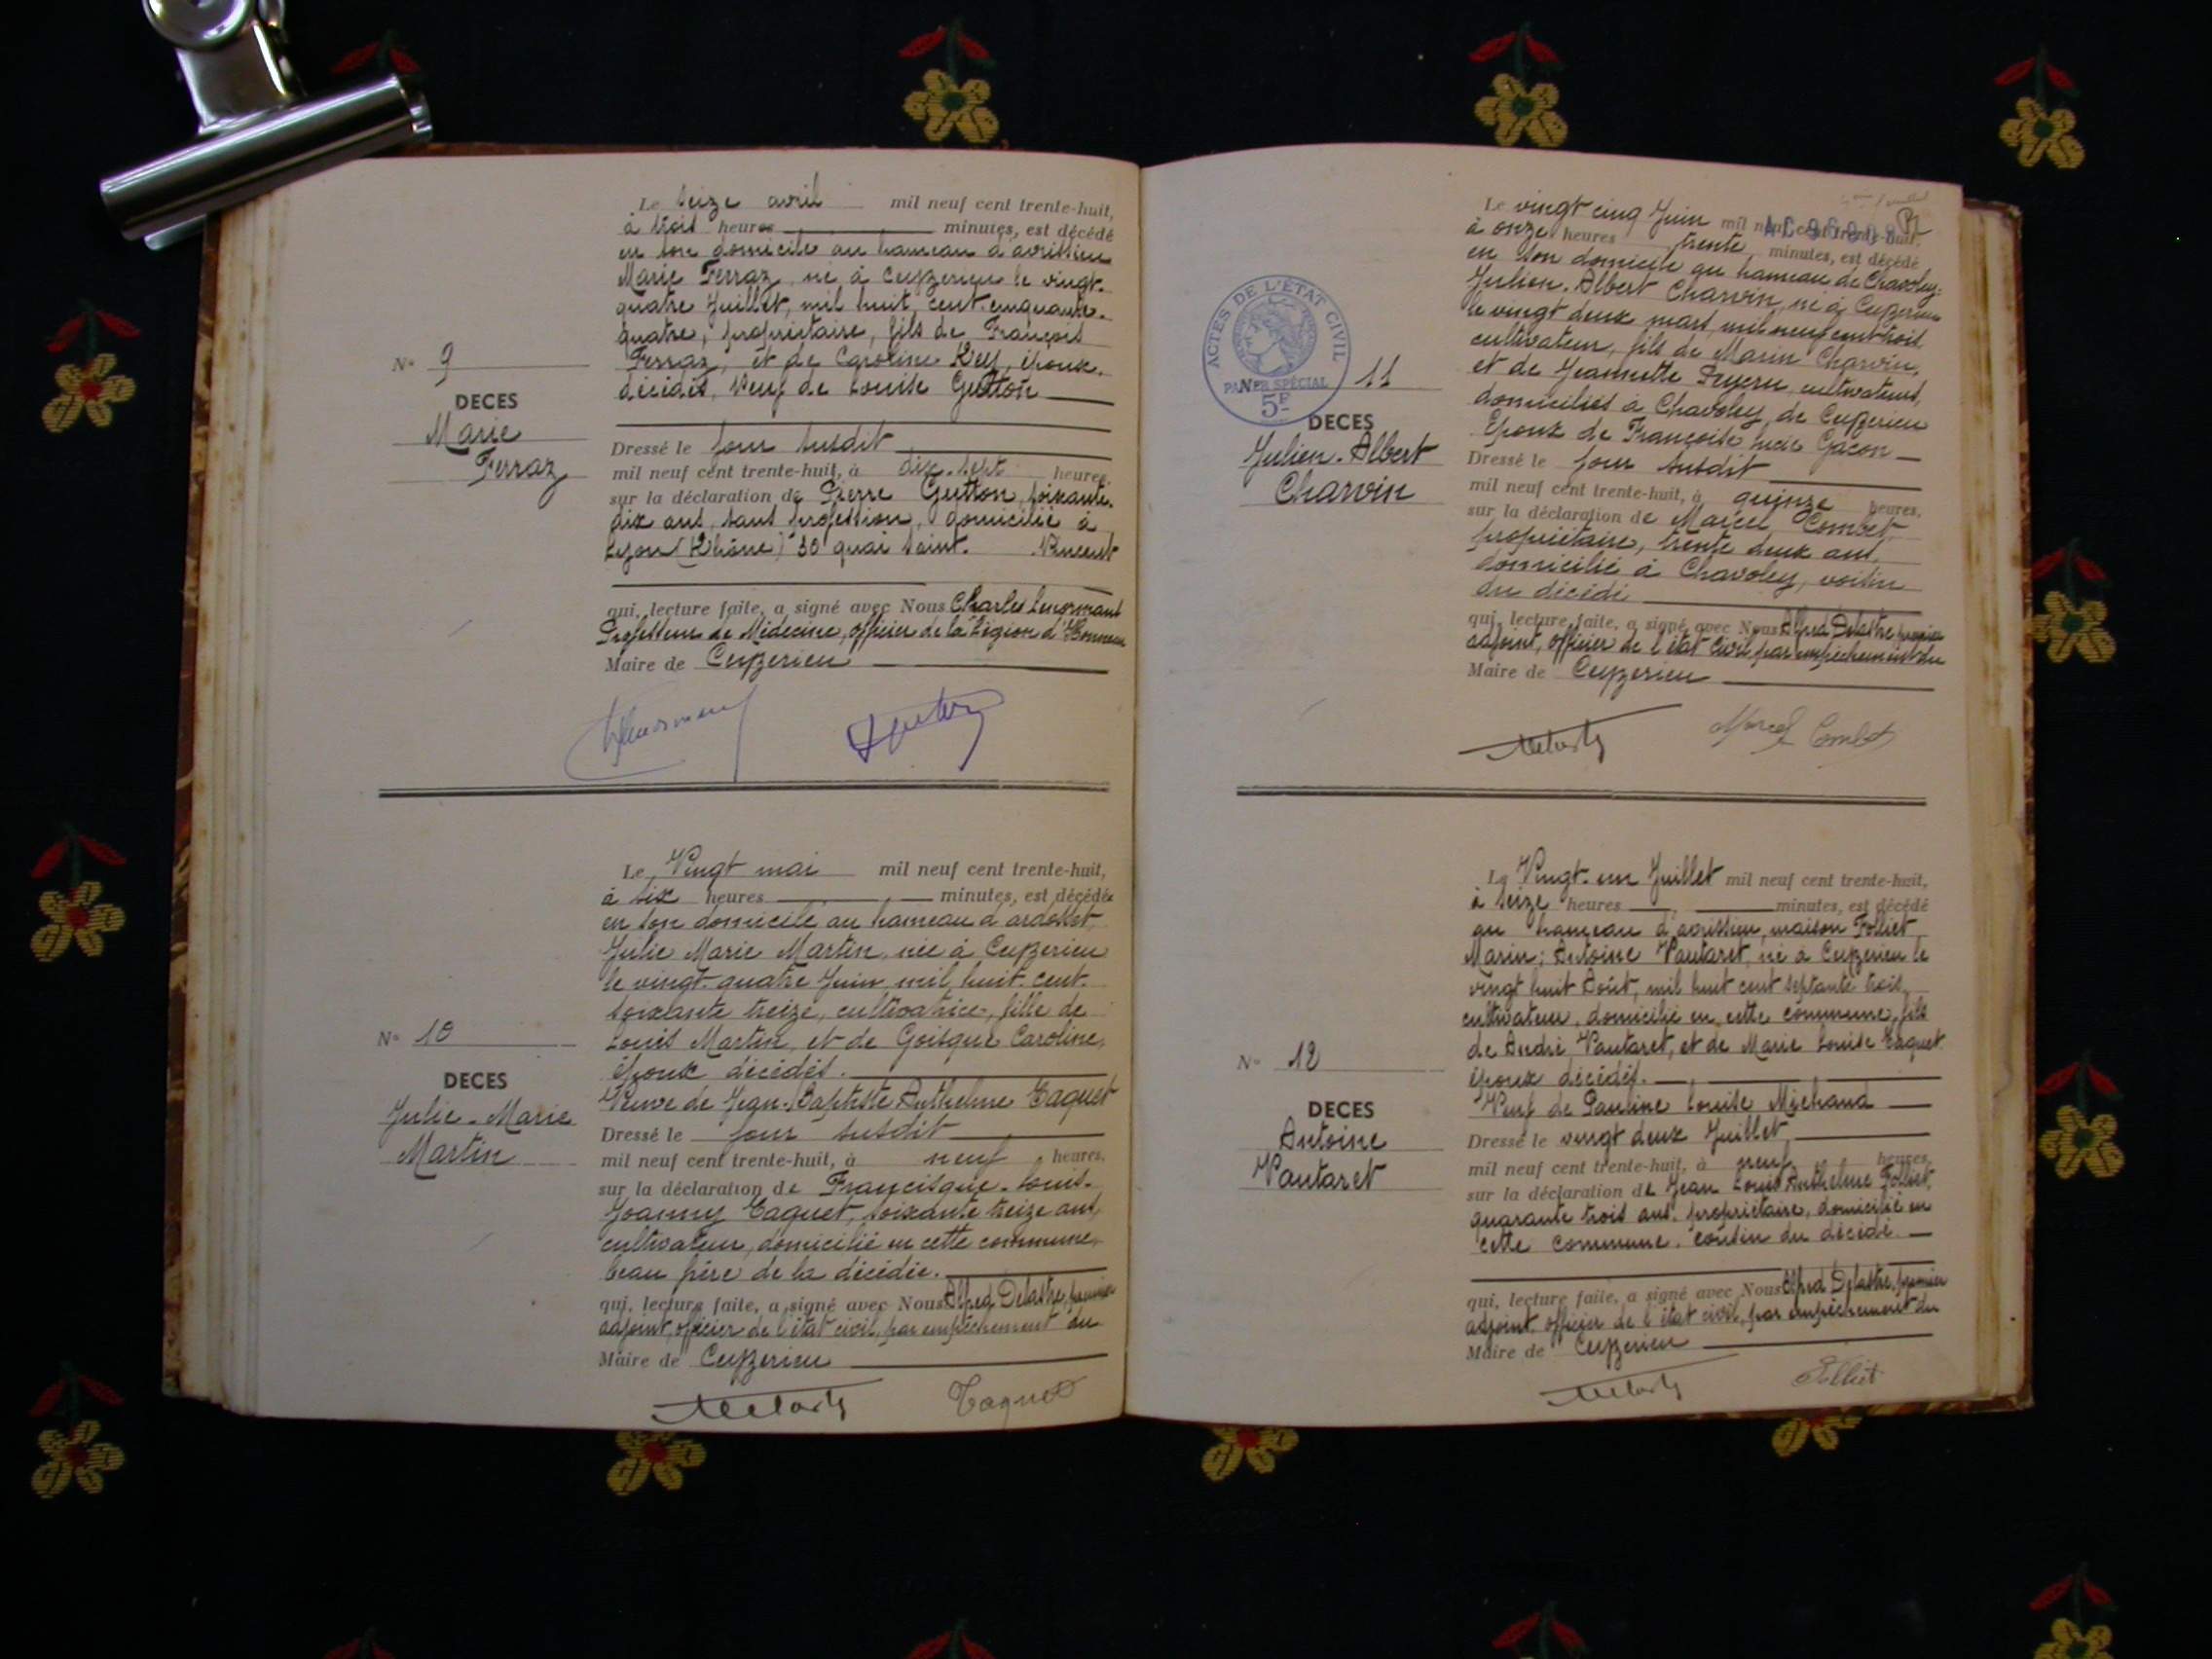 Le seize avril mil neuf cent trente-huit,
à trois heures minutes, est décédé
en son domicile au hameau d'avrissieu
Marie Ferraz, né à Ceyzerieu le vingt-
quatre Juillet, mil huit cent cinquante-
quatre, propriétaire, fils de François
Ferraz, et de Caroline Rey, époux
décédés, Veuf de Louise Gutton
N° 9
DECES
Marie
Ferraz
Dressé le jour susdit
mil neuf cent trente-huit, à dix-sept heures,
sur la déclaration de Pierre Gutton, soixante-
dix ans, sans profession, domicilié à
Lyon (Rhône) 30 quai Saint-Vincent
qui, lecture faite, a signé avec Nous Charles Lenormant
Professeur de Médecine, officier de la Légion d'Honneur
Maire de Ceyzerieu
Le Vingt mai mil neuf cent trente-huit,
à six heures minutes, est décédée
en son domicile au hameau d'ardosset,
Julie Marie Martin, née à Ceyzerieu
le vingt-quatre Juin mil huit-cent-
soixante treize, cultivatrice, fille de
Louis Martin, et de Goisque Caroline,
époux décédés.
Veuve de Jean-Baptiste Anthelme Taquet
N° 10
DECES
Julie-Marie
Martin
Dressé le jour susdit
mil neuf cent trente-huit, à neuf heures,
sur la déclaration de Francisque-Louis-
Joanny Taquet, soixante treize ans,
cultivateur, domicilié en cette commune,
beau frère de la décédée.
qui, lecture faite, a signé avec Nous Alfred Delastre, premier
adjoint, officier de l'état civil, par empêchement du
Maire de Ceyzerieu
Taquet
Le vingt cinq Juin mil neuf cent trente-huit,
à onze heures trente minutes, est décédé
en son domicile au hameau de Chavoley:
Julien-Albert Charvin, né à Ceyzerieu
le vingt deux mars, mil neuf cent trois
cultivateur, fils de Marin Charvin,
et de Jeannette cultivateurs,
domiciliés à Chavoley, de Ceyzerieu
Epoux de Françoise Lucie Gacon
ACTES DE L'ÉTAT CIVIL
PAPIER SPÉCIAL
5F
N° 11
DECES
Julien-Albert
Charvin
Dressé le jour susdit
mil neuf cent trente-huit, à quinze heures,
sur la déclaration de Marcel Combet,
propriétaire, trente deux ans,
domicilié à Chavoley, voisin
du décédé
qui, lecture faite, a signé avec Nous Alfred Delastre, premier
adjoint, officier de l'état civil, par empêchement du
Maire de Ceyzerieu
Marcel Combet
Le Vingt-un Juillet mil neuf cent trente-huit,
à seize heures minutes, est décédé
au hameau d'avrissieu, maison Folliet
Marin: Antoine Vautaret, né à Ceyzerieu le
vingt huit Août, mil huit cent septante trois,
cultivateur, domicilié en cette commune, fils
de André Vautaret, et de Marie Louise Taquet
époux décédés.
Veuf de Pauline Louise Michaud
N° 12
DECES
Antoine
Vautaret
Dressé le vingt deux Juillet
mil neuf cent trente-huit, à neuf heures,
sur la déclaration de Jean Louis Anthelme Folliet,
quarante trois ans, propriétaire, domicilié en
cette commune, cousin du décédé.
qui, lecture faite, a signé avec Nous Alfred Delastre, premier
adjoint, officier de l'état civil, par empêchement du
Maire de Ceyzerieu
Folliet